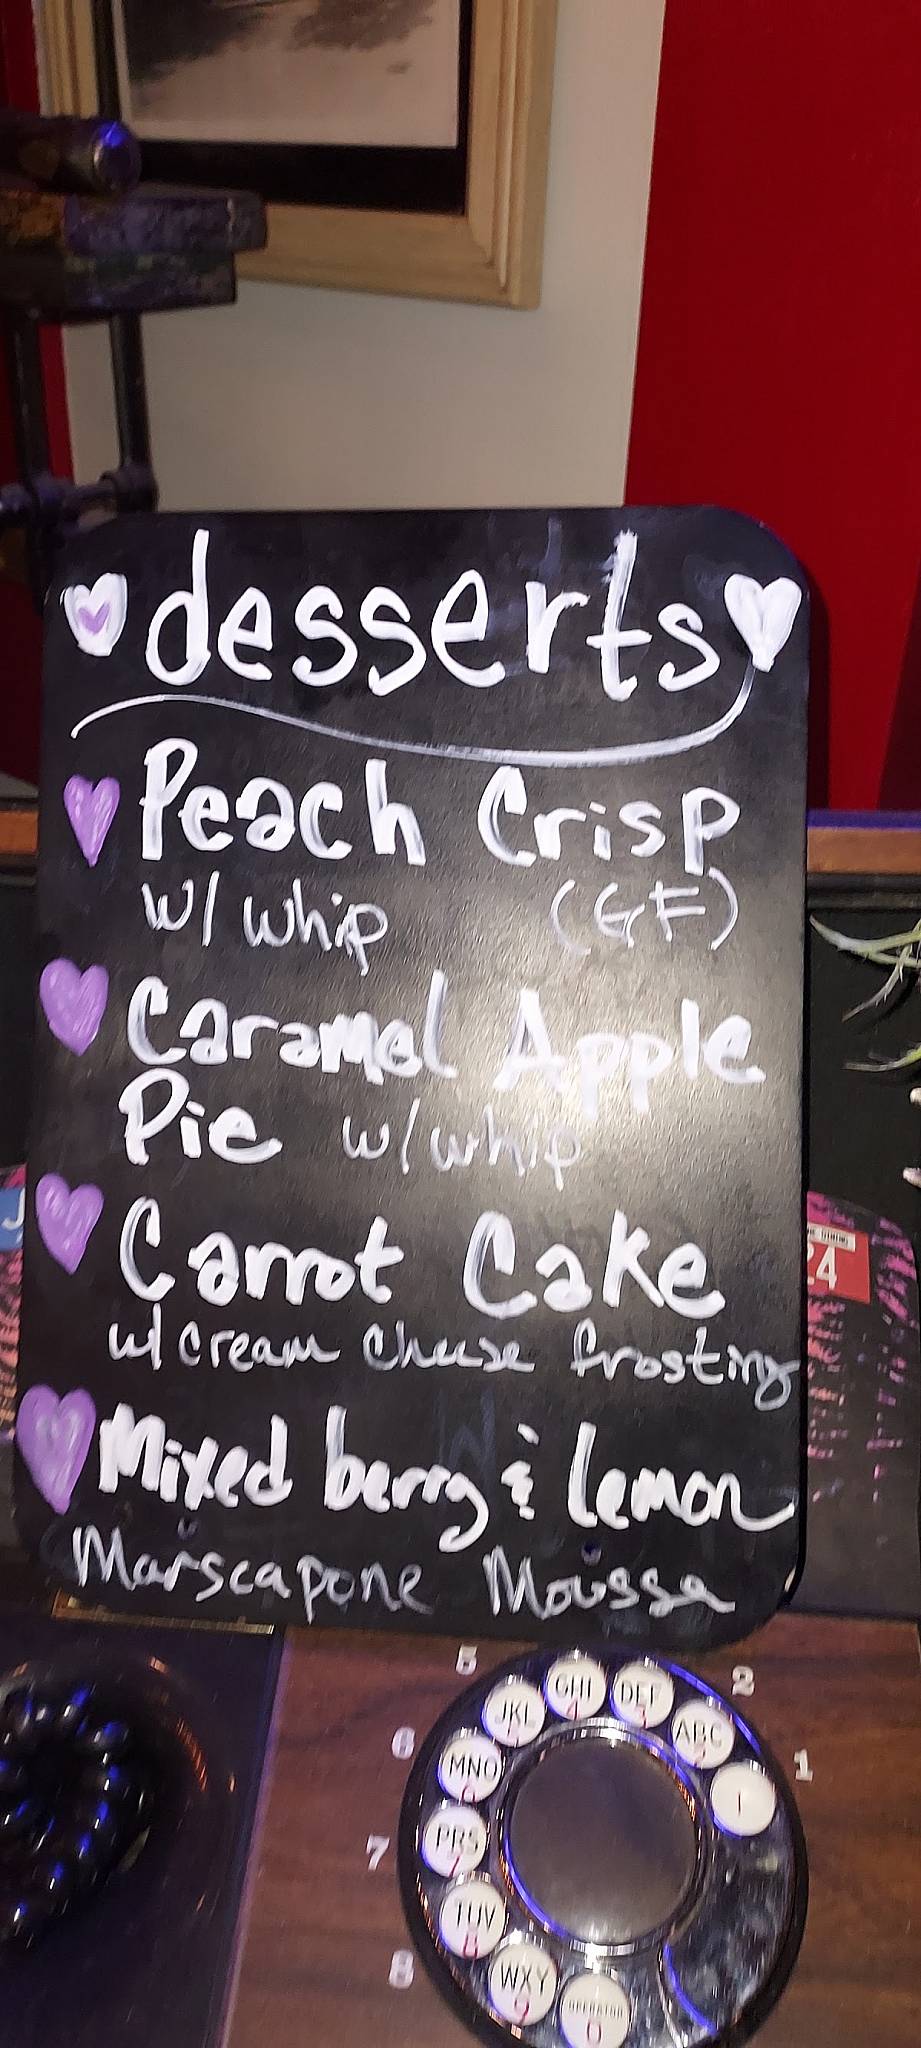 desserts
Peach Crisp
w/ whip (GF)
Caramel Apple
Pie w/ whip
Carrot Cake
w/ cream cheese frosting
Mixed berry & lemon
Marscapone Mousse
5
2
6
1
7
8
GHI 4
DEF 3
JKL
ABC 2
MNO 6
1
PRS 7
TUV 8
WXY 9
OPERATOR 0
J
24